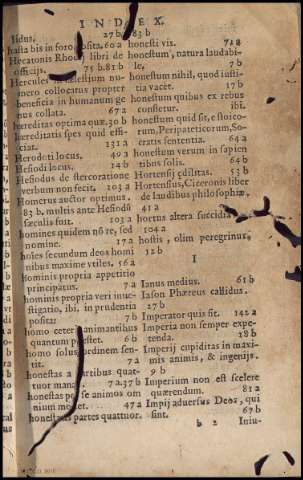 INDEX.
lidus. 27 b
hasta bis in foro posita. 60 a
Hecatonis Rhodij libri de
officijs. 75 b. 81 b
Hercules in cœlestium nu-
mero collocatus propter
beneficia in humanum ge
nus collata. 67 a
hereditas optima quæ. 30 b
hæreditatis spes quid effi-
ciat. 131 a
Herodoti locus. 49 a
Hesiodi locus. 14 b
Hesiodus de stercoratione
verbum non fecit. 103 a
Homerus auctor optimus.
83 b, multis ante Hesiodū
sæculis fuit. 103 a
homines quidem nō re, sed
nomine. 17 a
hoīes secundum deos homi
nibus maxime vtiles. 56 a
hominis propria appetitio
principatus. 7 a
hominis propria veri inue-
stigatio, ibi. in prudentia
posita: 7 b
homo ceteris animantibus
quantum præstet. 6 b
homo solus ordinem sen-
tit. 7 a
honestas a partibus quat-
tuor manat. 7 a. 37 b
honestas per se animos om
nium mouet. 47 a
honestatis partes quattuor.
83 b
honesti vis. 71 a
honestum, natura laudabi-
le. 7 b
honestum nihil, quod iusti-
tia vacet. 17 b
honestum quibus ex rebus
censetur. ibi.
honestum quid sit, e stoico-
rum, Peripateticorum, So-
cratis sententia. 64 a
honestum verum in sapien
tibus solis. 64 b
Hortensij ædilitas. 53 b
Hortensius, Ciceronis liber
de laudibus philosophiæ.
41 a
hortus altera succidia
104 a
hostis, olim peregrinus,
12 b
I
Ianus medius. 61 b
Iason Phæreus callidus.
27 b
Imperator quis sit. 142 a
Imperia non semper expe-
tenda. 18 b
Imperij cupiditas in maxi-
mis animis, & ingenijs.
9 b
Imperium non est scelere
quærendum. 81 a
Impij aduersus Deos, qui
sint. 67 b
b 2 Iniu-